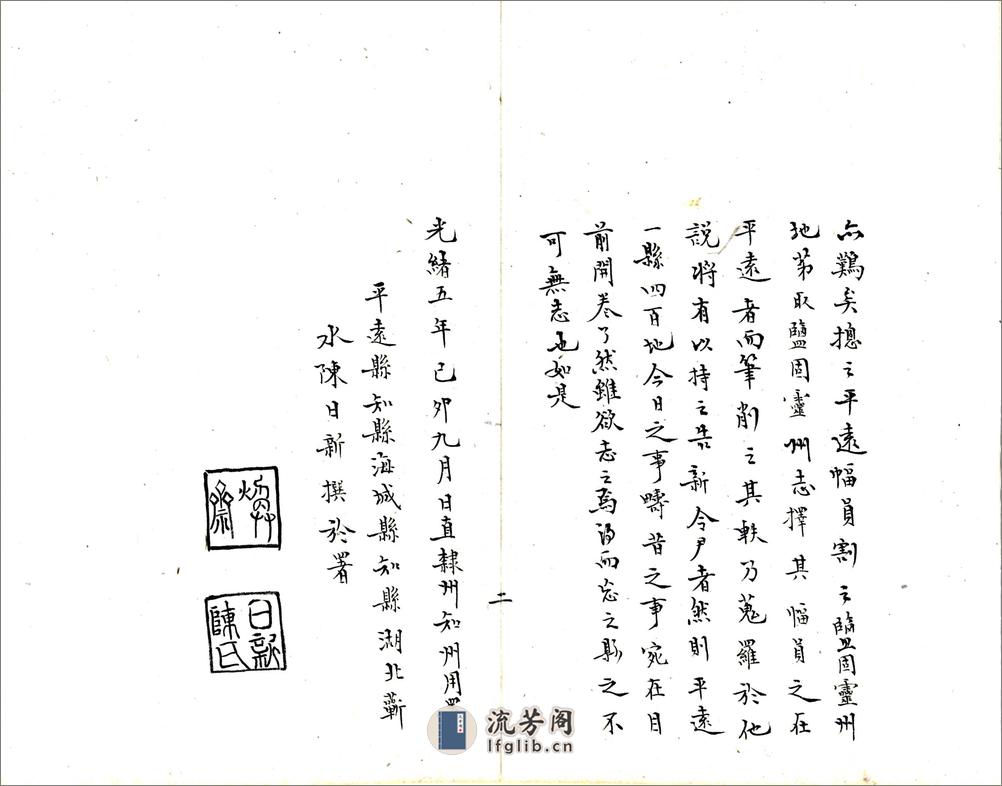 亦難矣揔之平遠幅員割之鹽固靈州
地第取鹽固靈州志擇其幅員之在
平遠者而筆削之其軼乃蒐羅於他
說將有以持之告新令尹者然則平遠
一縣四百地今日之事疇昔之事宛在目
前開卷了然雖欲忘之焉得而忘之縣之不
可無志也如是
二
光緒五年己卯九月日直隸州知州用署
平遠縣知縣海城縣知縣湖北蘄
水陳日新撰於署
齋
日新
陳氏
流芳阁
lfglib.cn